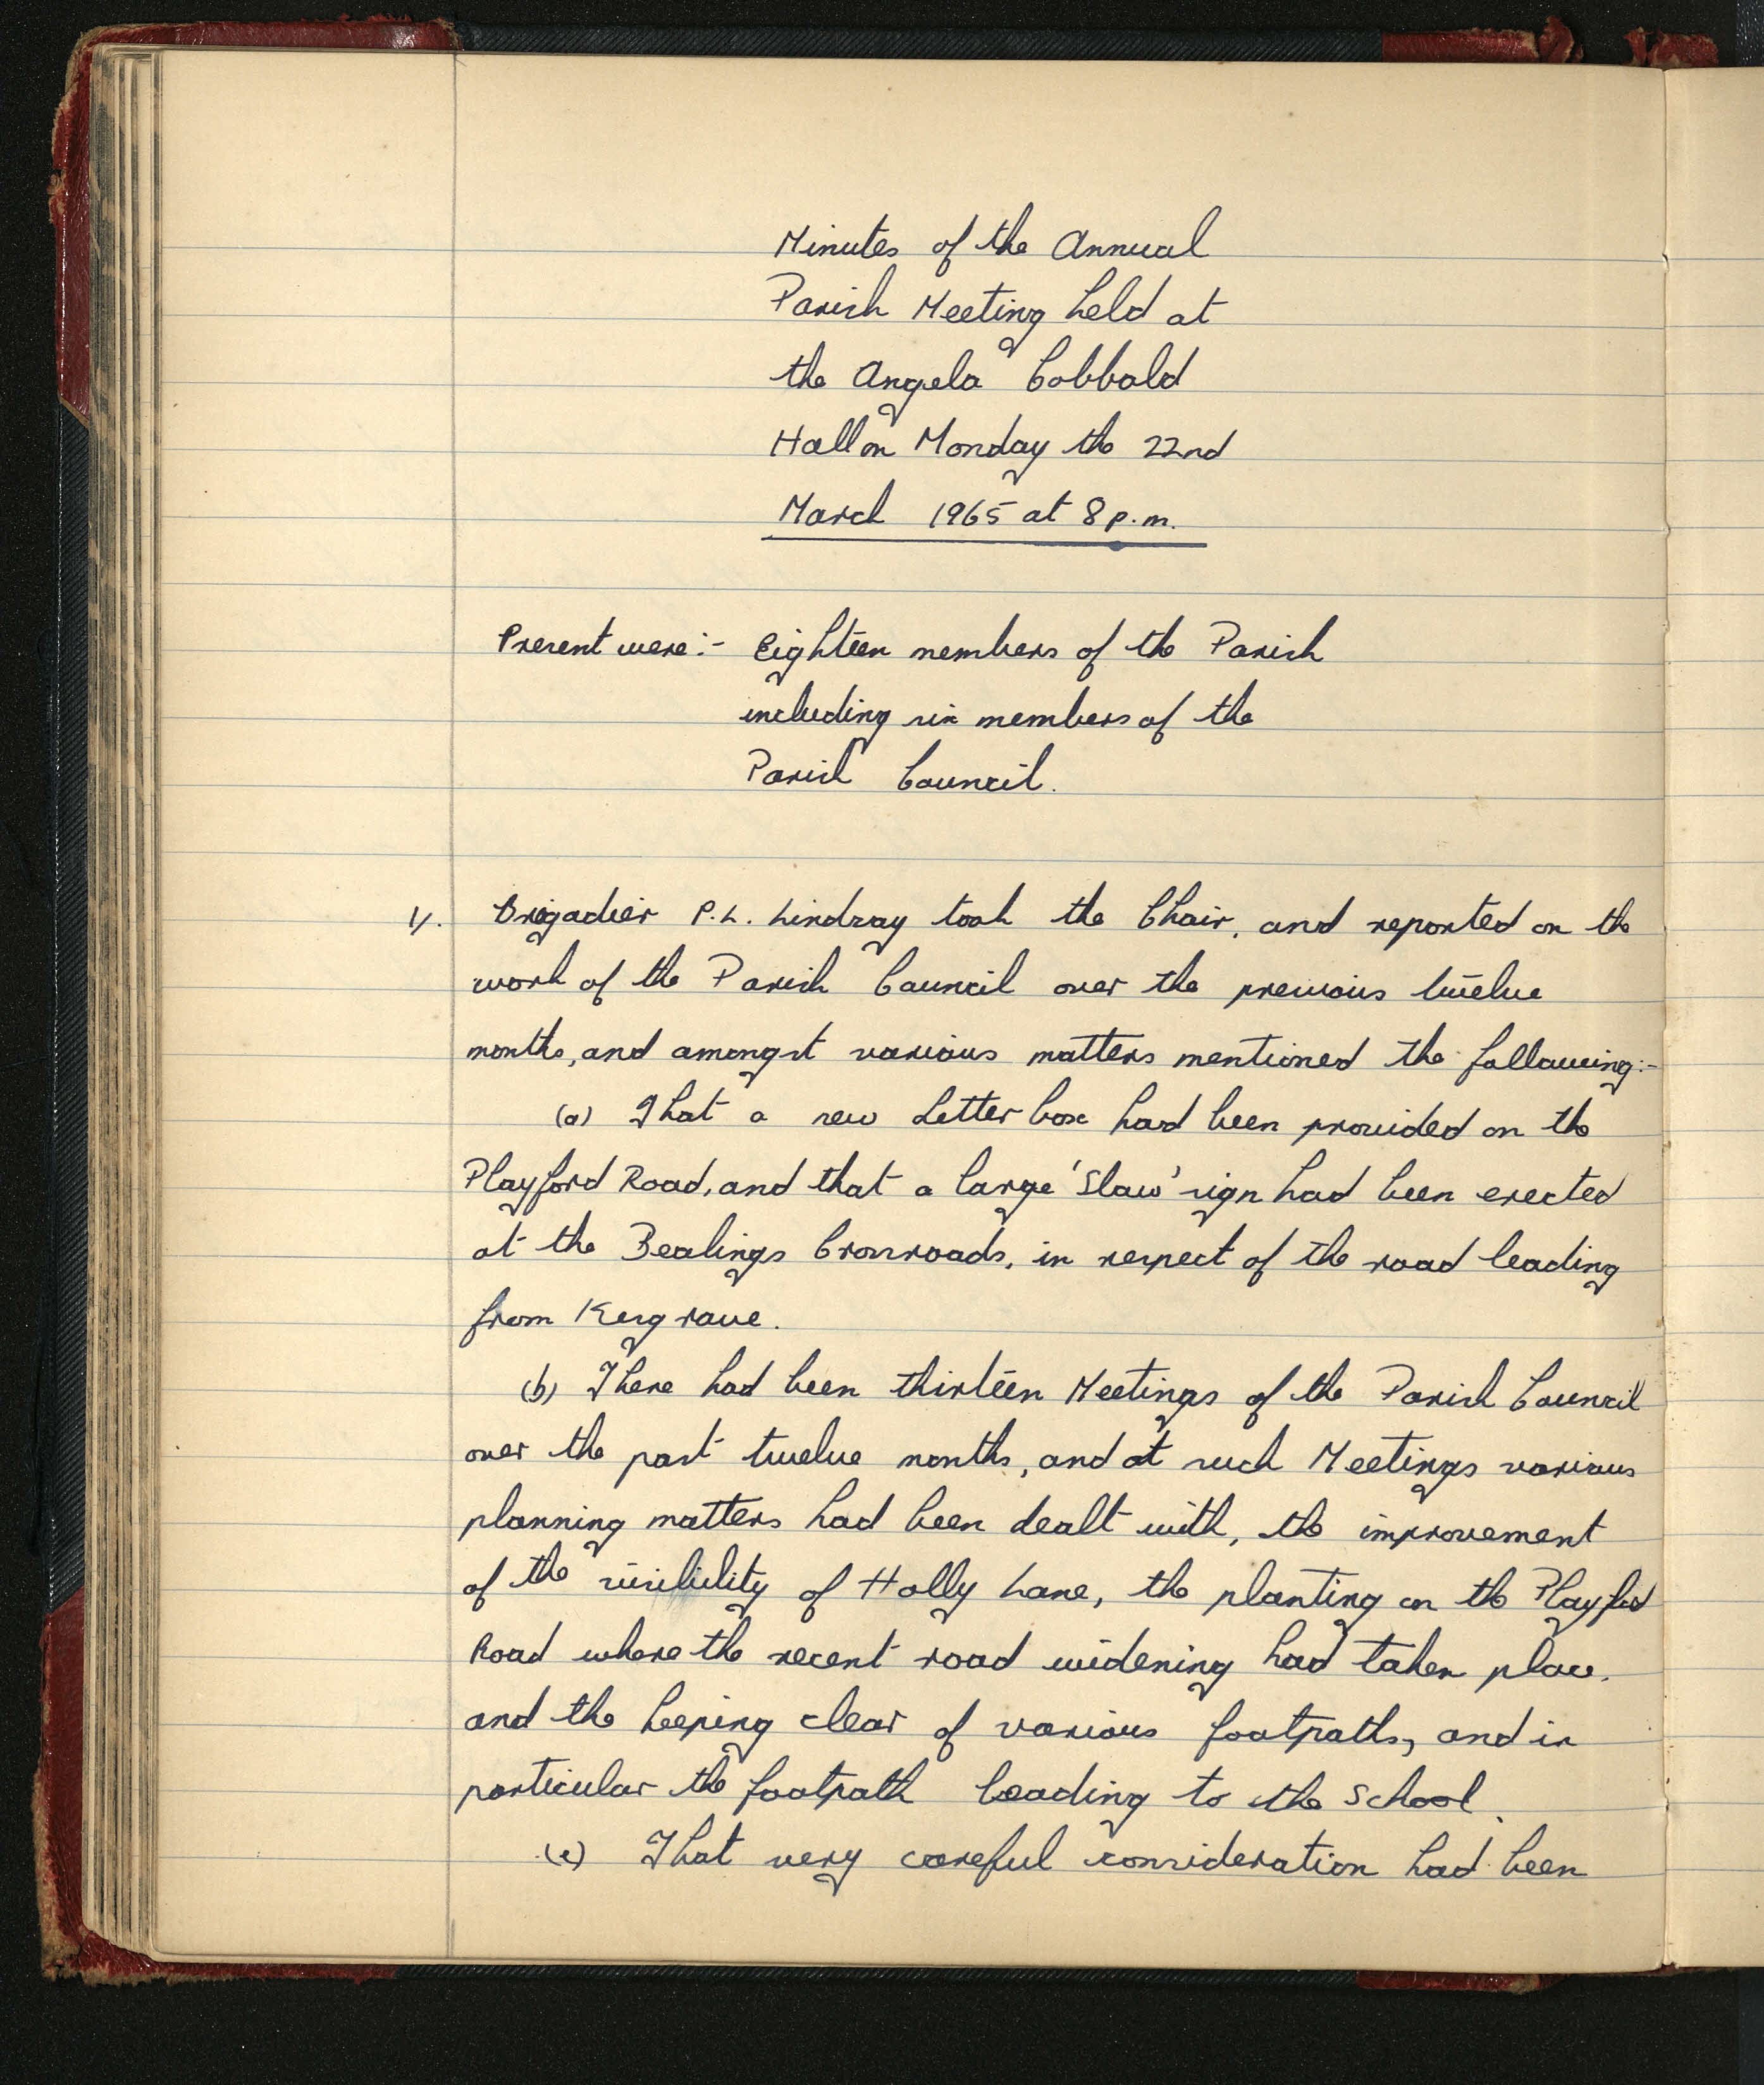 Minutes of the Annual
Parish Meeting held at
the Angela Cobbold
Hall on Monday the 22nd
March 1965 at 8 p.m.
Present were:- Eighteen members of the Parish
including six members of the
Parish Council.
1/. Brigadier P.L. Lindsay took the Chair, and reported on the
work of the Parish Council over the previous twelve
months, and amongst various matters mentioned the following:-
(a) That a new Letter box had been provided on the
Playford Road, and that a large 'Slow' sign had been erected
at the Bealings Crossroads, in respect of the road leading
from Kesgrave.
(b) There had been thirteen Meetings of the Parish Council
over the past twelve months, and at such Meetings various
planning matters had been dealt with, the improvement
of the visibility of Holly Lane, the planting on the Playford
Road where the recent road widening had taken place,
and the keeping clear of various footpaths, and in
particular the footpath leading to the School.
(c) That very careful consideration had been